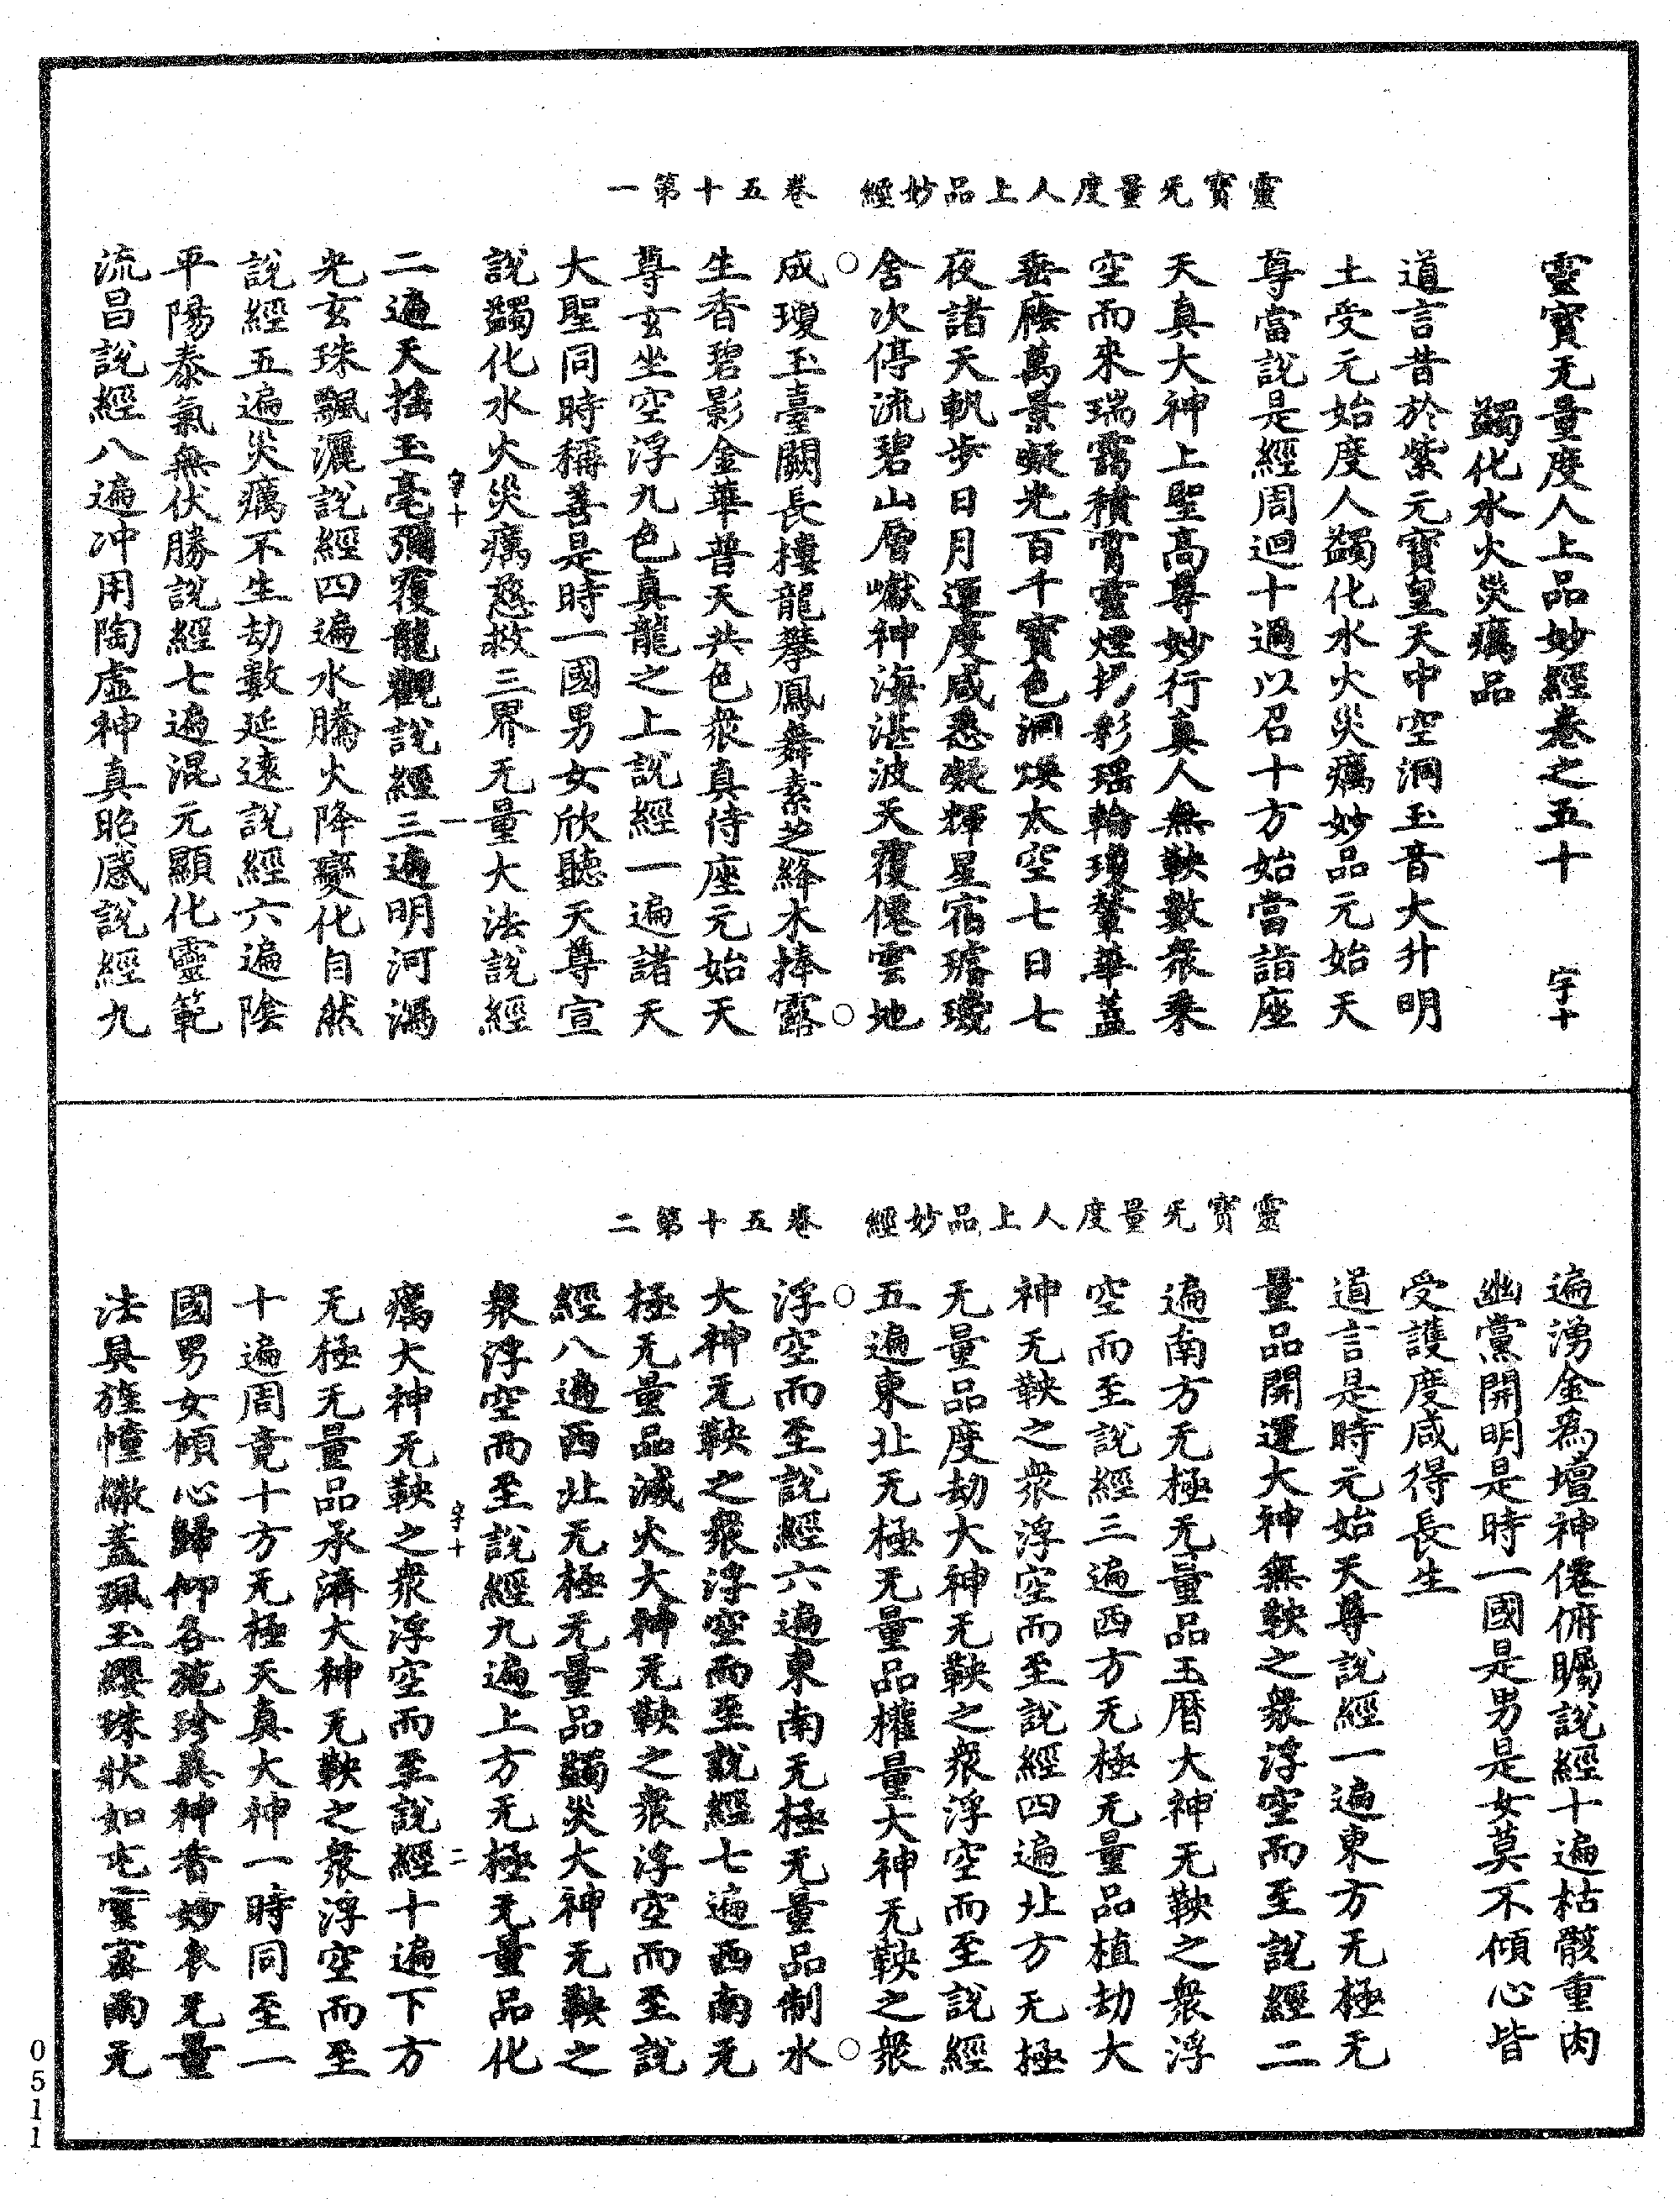 靈寶无量度人上品妙經 卷五十第一
靈寶无量度人上品妙經卷之五十 字十
蠲化水火災癘品
道言昔於紫元寶皇天中空洞玉音大升明
土受元始度人蠲化水火災癘妙品元始天
尊當說是經周迴十過以召十方始當詣座
天真大神上聖高尊妙行真人無鞅數衆乘
空而來瑞靄積霄靈煙抭彩瑶輪瓊輦華蓋
垂廕萬景凝光百千寶色洞煥太空七日七
夜諸天軌步日月運度咸悉凝輝星宿璿璣
舍次停流碧山層巘神海湛波天覆僊雲地
成瓊玉臺闕長摟龍擎鳳舞素芝絳木捧露
生香碧影金華普天共色衆真侍座元始天
尊玄坐空浮九色真龍之上說經一遍諸天
大聖同時稱善是時一國男女欣聽天尊宣
說蠲化水火災癘慈救三界无量大法說經
字十 一
二遍天搖玉毫彌覆龍觀說經三遍明河漏
光玄珠飄灑說經四遍水騰火降變化自然
說經五遍災癘不生劫數延遠說經六遍陰
平陽泰氣無伏勝說經七遍混元顯化靈範
流昌說經八遍冲用陶虛神真昭感說經九
靈寶无量度人上品妙經 卷五十第二
遍湧金爲壇神僊俯矚說經十遍枯骸重肉
幽黨開明是時一國是男是女莫不傾心皆
受護度咸得長生
道言是時元始天尊說經一遍東方无極无
量品開運大神無鞅之衆浮空而至說經二
遍南方无極无量品玉曆大神无鞅之衆浮
空而至說經三遍西方无極无量品植劫大
神无鞅之衆浮空而至說經四遍北方无極
无量品度劫大神无鞅之衆浮空而至說經
五遍東北无極无量品權量大神无鞅之衆
浮空而至說經六遍東南无極无量品制水
大神无鞅之衆浮空而至說經七遍西南无
極无量品滅火大神无鞅之衆浮空而至說
經八遍西北无極无量品蠲災大神无鞅之
衆浮空而至說經九遍上方无極无量品化
字十 二
癘大神无鞅之衆浮空而至說經十遍下方
无極无量品承濟大神无鞅之衆浮空而至
十遍周竟十方无極天真大神一時同至一
國男女傾心歸仰各施珍異神香妙衣无量
法具旌幢繖蓋珮玉纓珠狀如屯雲密雨无
0511